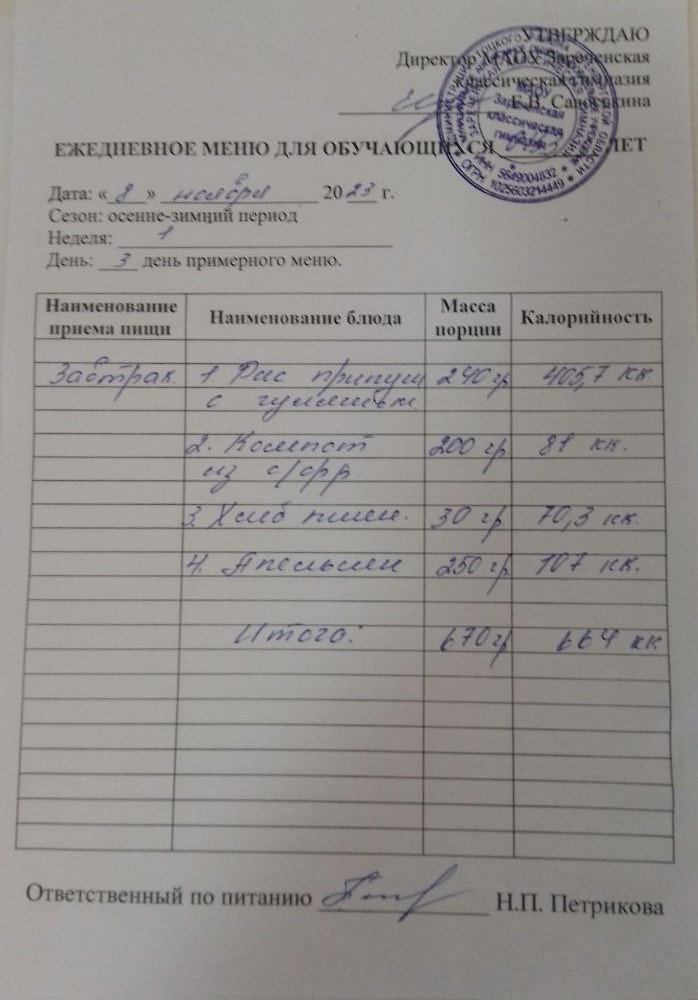 УТВЕРЖДАЮ
Директор МАОУ Зареченская
классическая гимназия
Е.В.
МАОУ
Зареченская
классическая
гимназия
ИНН 5649004832
ОГРН 1025603214449
ЕЖЕДНЕВНОЕ МЕНЮ ДЛЯ ОБУЧАЮЩИХСЯ ЛЕТ
Дата: « 8 » ноября 2023 г.
Сезон: осенне-зимний период
Неделя: 1
День: 3 день примерного меню.
Наименование приема пищи Наименование блюда Масса порции Калорийность
Завтрак 1. Рис припущ 240 гр 405,7 кк.
с гуляшем
2. Компот 200 гр 81 кк.
из с/фр.
3. Хлеб пшен. 30 гр 70,3 кк.
4. Апельсин 250 гр 107 кк.
Итого: 670 гр 664 кк
Ответственный по питанию Н.П. Петрикова